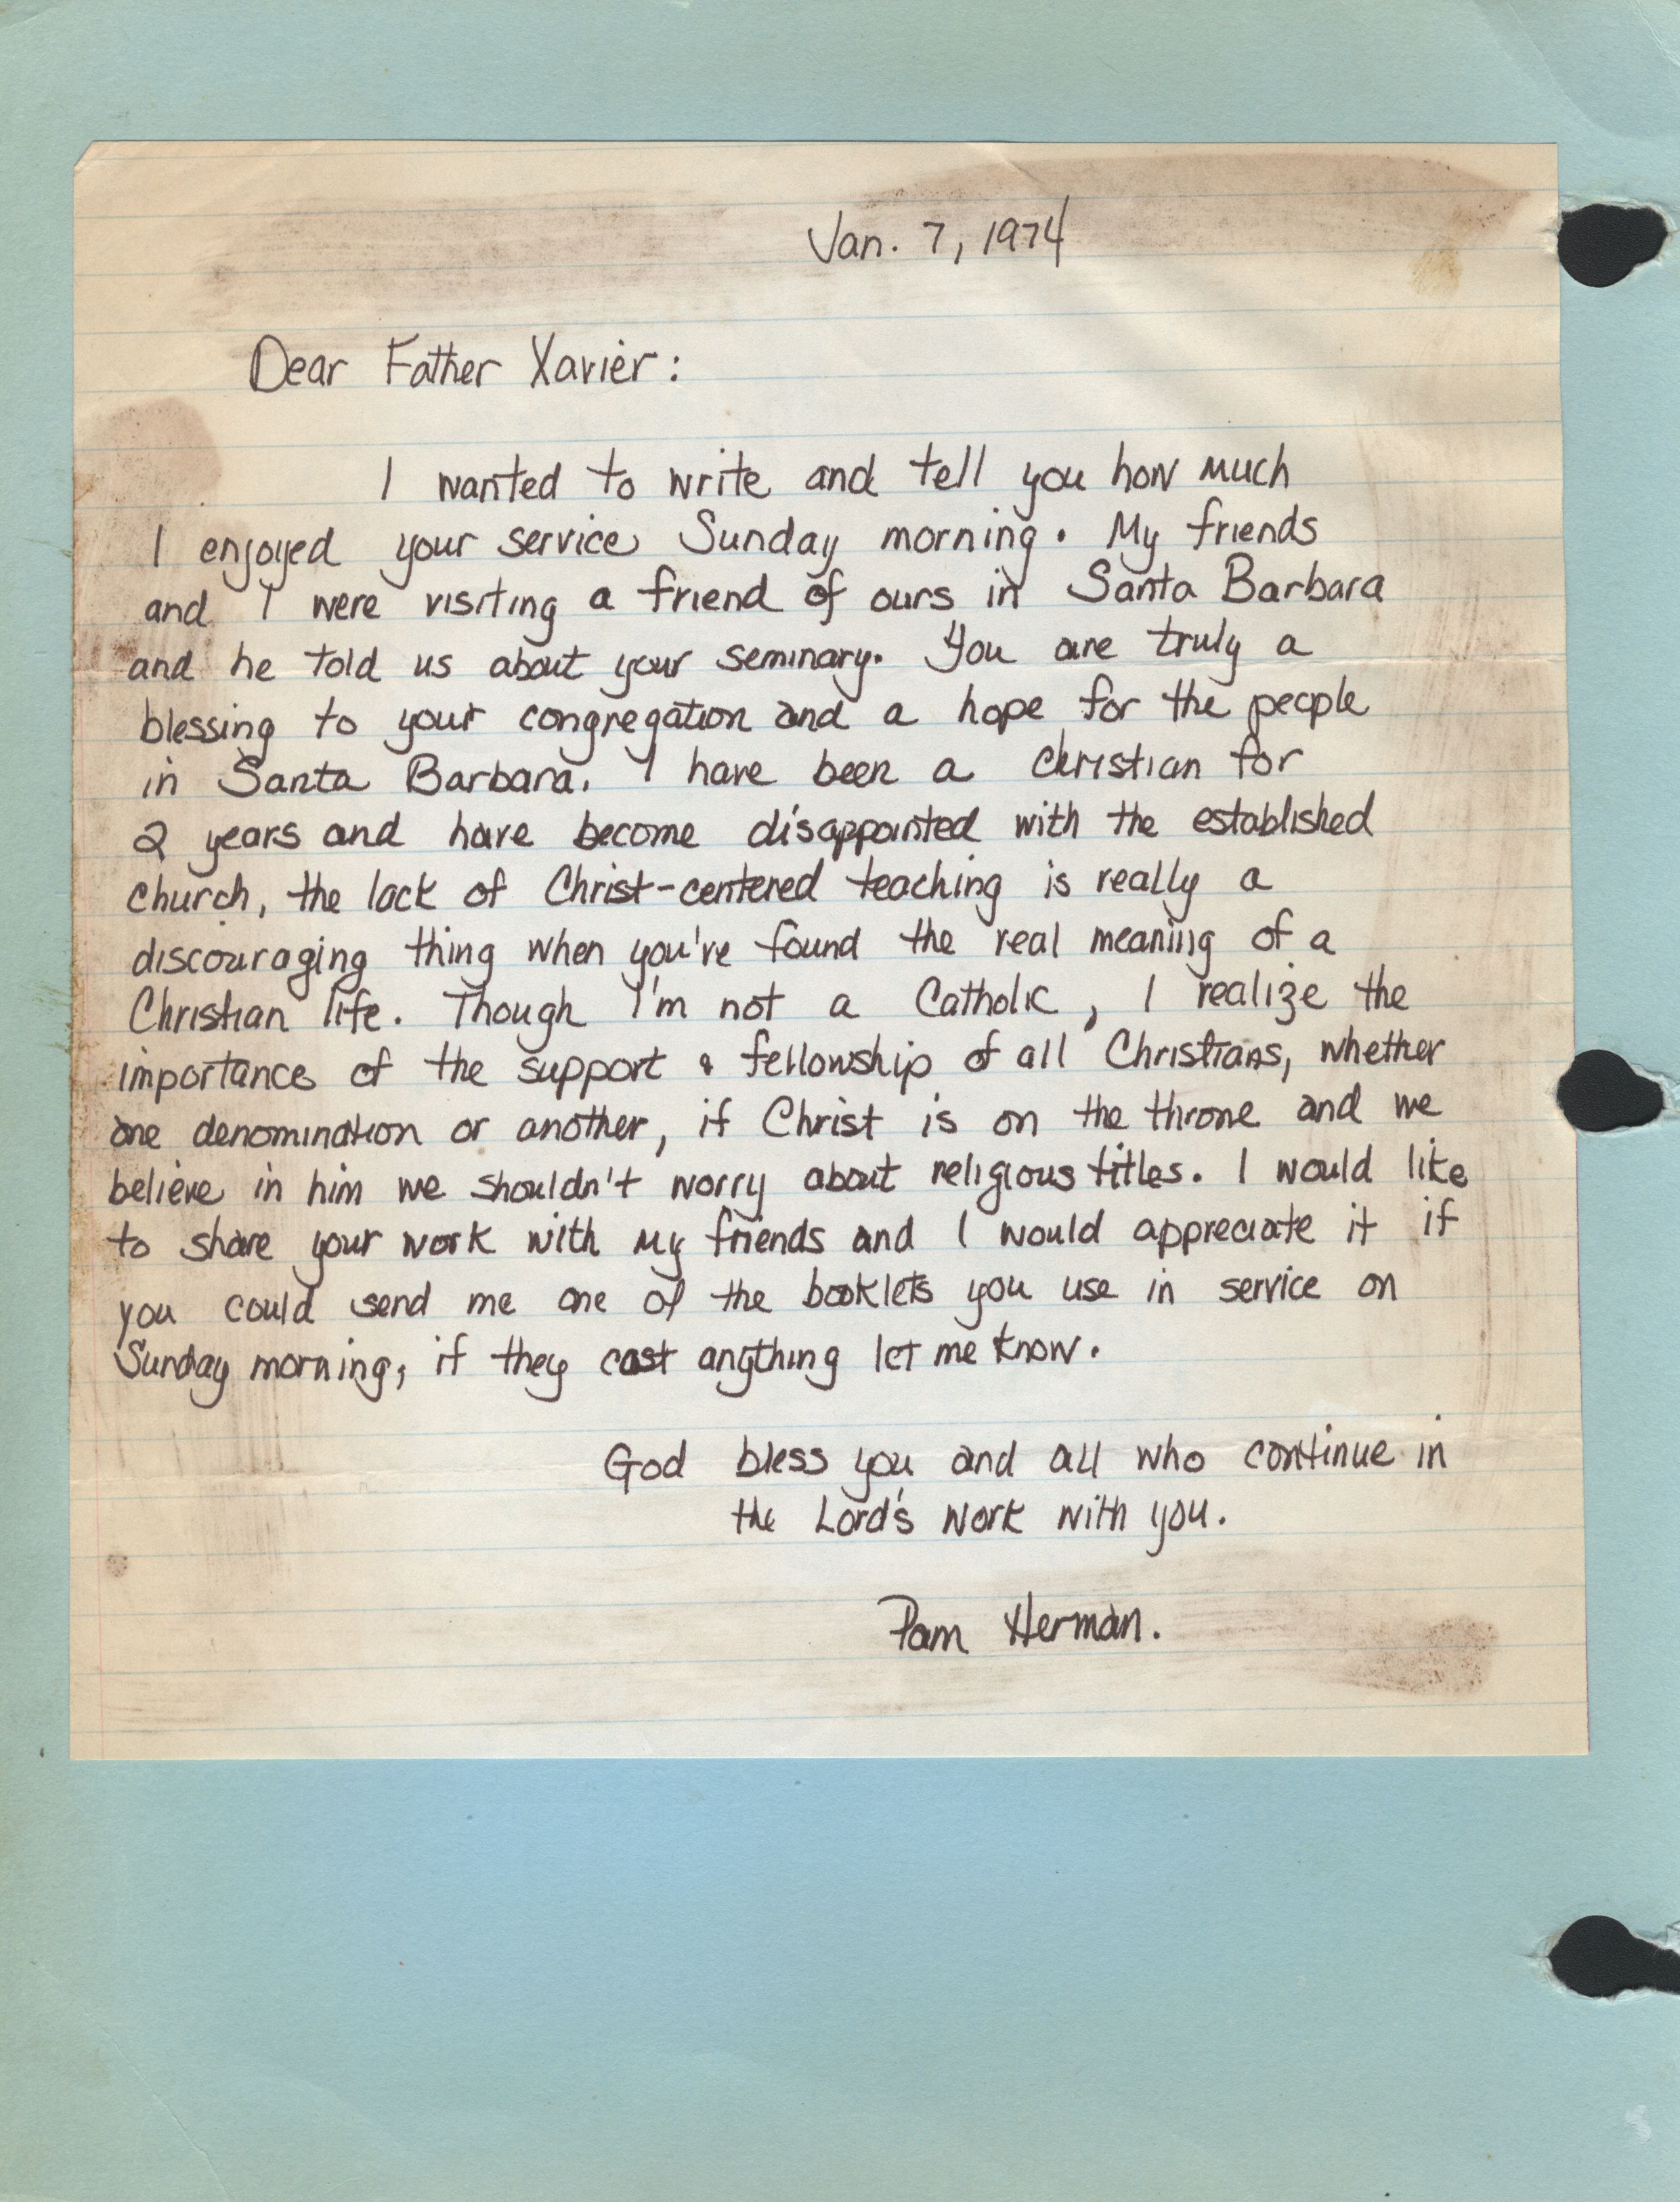 Jan. 7, 1974
Dear Father Xavier:
I wanted to write and tell you how much
I enjoyed your service Sunday morning. My friends
and I were visiting a friend of ours in Santa Barbara
and he told us about your seminary. You are truly a
blessing to your congregation and a hope for the people
in Santa Barbara. I have been a Christian for
2 years and have become disappointed with the established
church, the lack of Christ-centered teaching is really a
discouraging thing when you've found the real meaning of a
Christian life. Though I'm not a Catholic, I realize the
importance of the support & fellowship of all Christians, whether
one denomination or another, if Christ is on the throne and we
believe in him we shouldn't worry about religious titles. I would like
to share your work with my friends and I would appreciate it if
you could send me one of the booklets you use in service on
Sunday morning, if they cost anything let me know.
God bless you and all who continue in
the Lord's work with you.
Pam Herman.